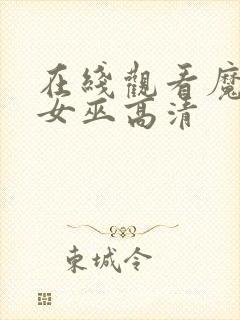 在綫觀看魔
女巫高清
東城令